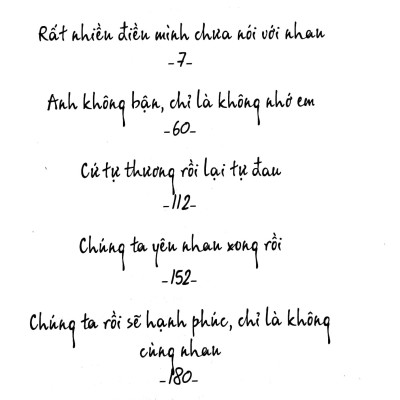 Rất nhiều điều mình chưa nói với nhau
-7-
Anh không bận, chỉ là không nhớ em
-60-
Cứ tự thương rồi lại tự đau
-112-
Chúng ta yêu nhau xong rồi
-152-
Chúng ta rồi sẽ hạnh phúc, chỉ là không
cùng nhau
-180-